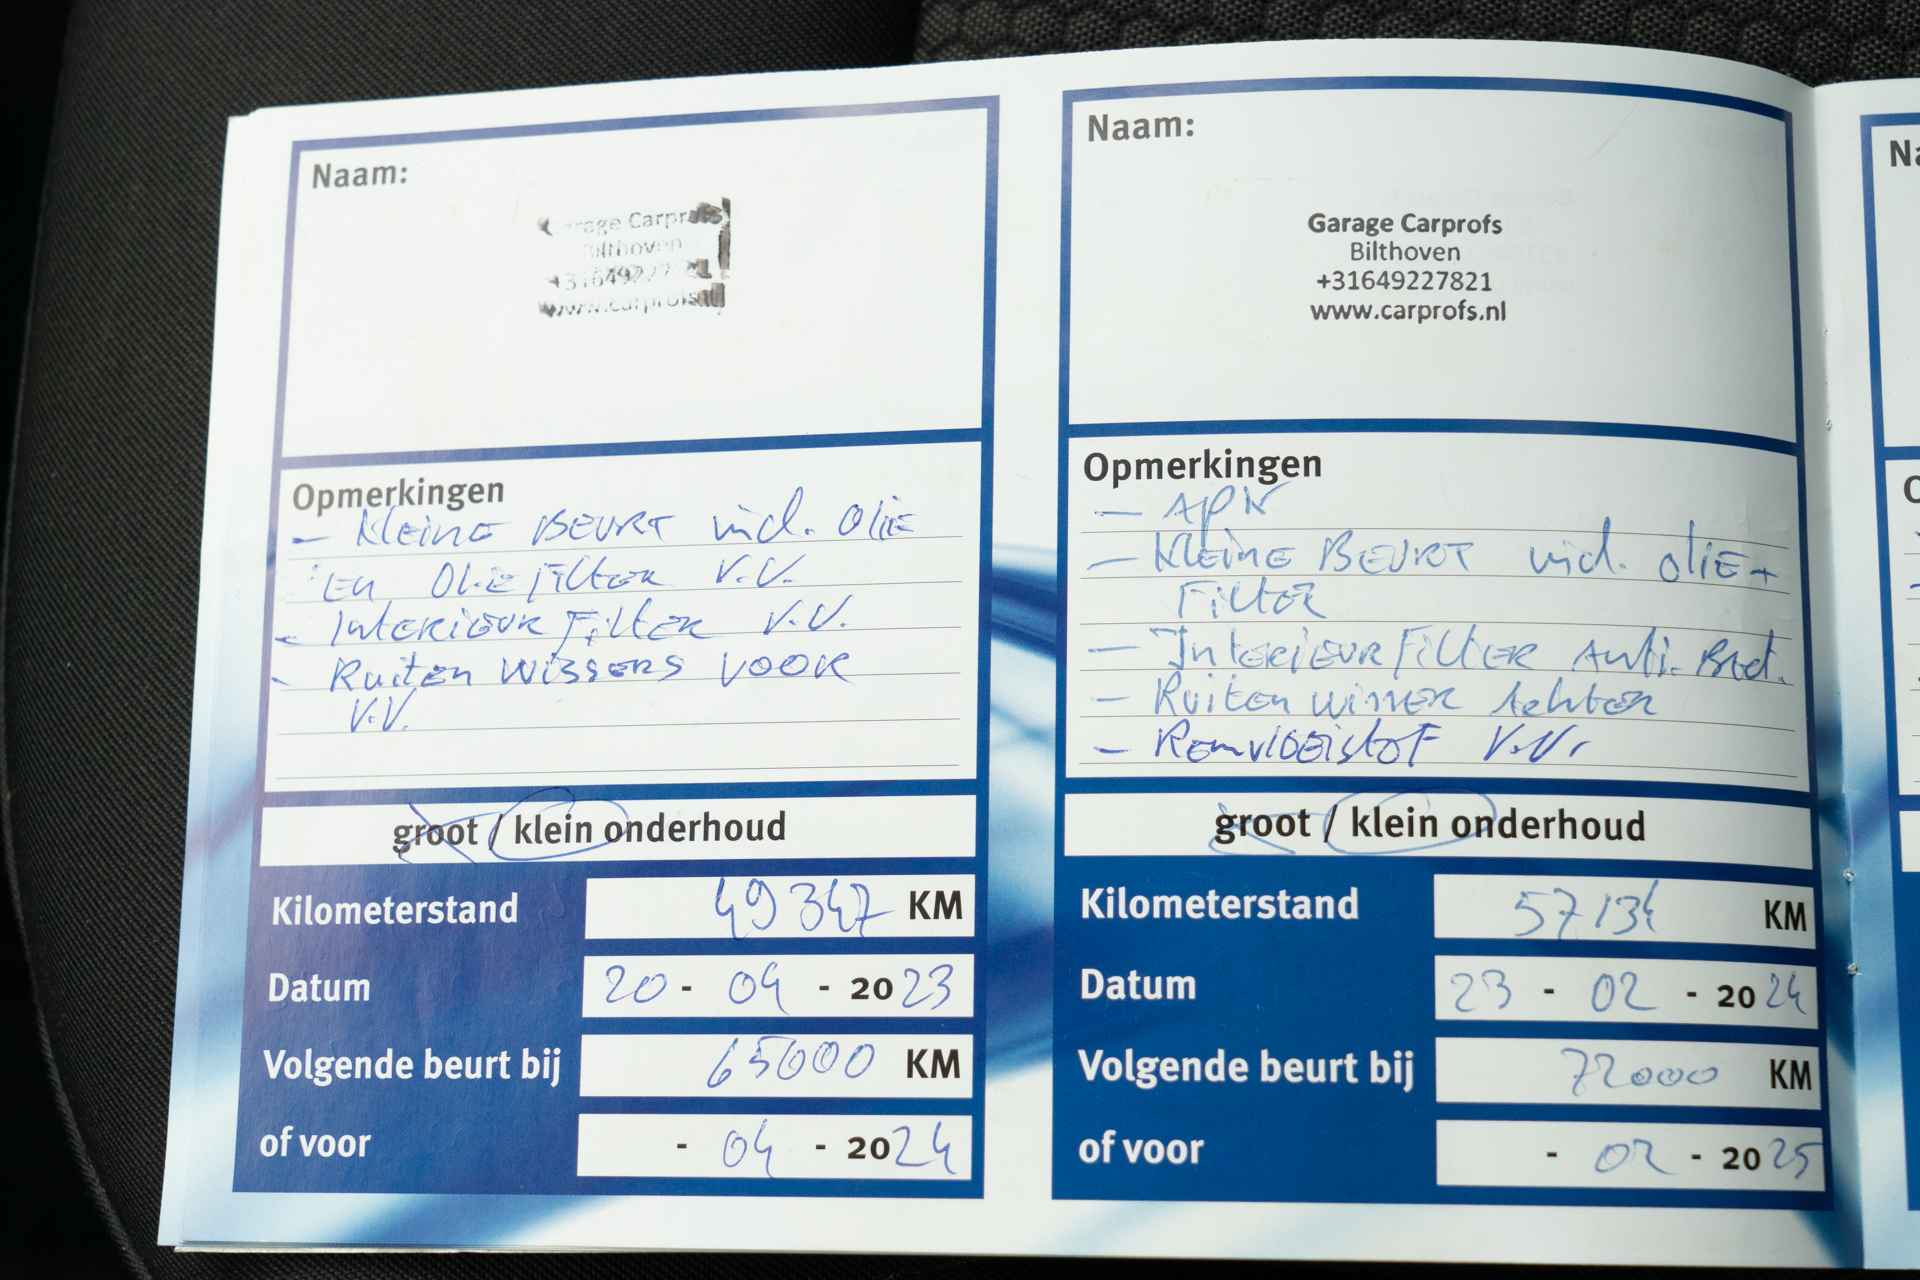 Naam:
Garage Carprofs
Bilthoven
www.carprofs.nl
Opmerkingen
- Kleine Beurt incl. olie
en Oliefilter V.V.
- Interieurfilter V.V.
- Ruitenwissers voor
V.V.
groot / klein onderhoud
Kilometerstand 49347 KM
Datum 20 - 04 - 2023
Volgende beurt bij 65000 KM
of voor - 04 - 2024
Naam:
Garage Carprofs
Bilthoven
+31649227821
www.carprofs.nl
Opmerkingen
- APK
- Kleine Beurt incl. olie +
Filter
- Interieurfilter Anti-Bact.
- Ruitenwisser Achter
- Remvloeistof V.V.
groot / klein onderhoud
Kilometerstand 57134 KM
Datum 23 - 02 - 2024
Volgende beurt bij 72000 KM
of voor - 02 - 2025